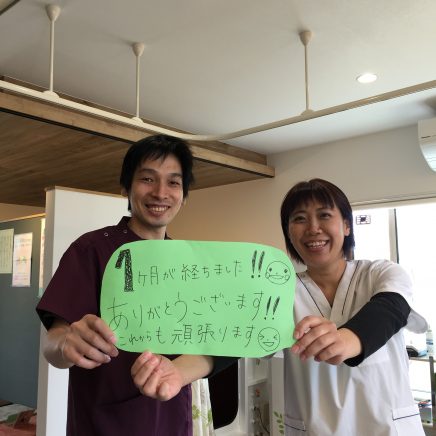 1ヶ月が経ちました!!
ありがとうございます!!
これからも頑張ります